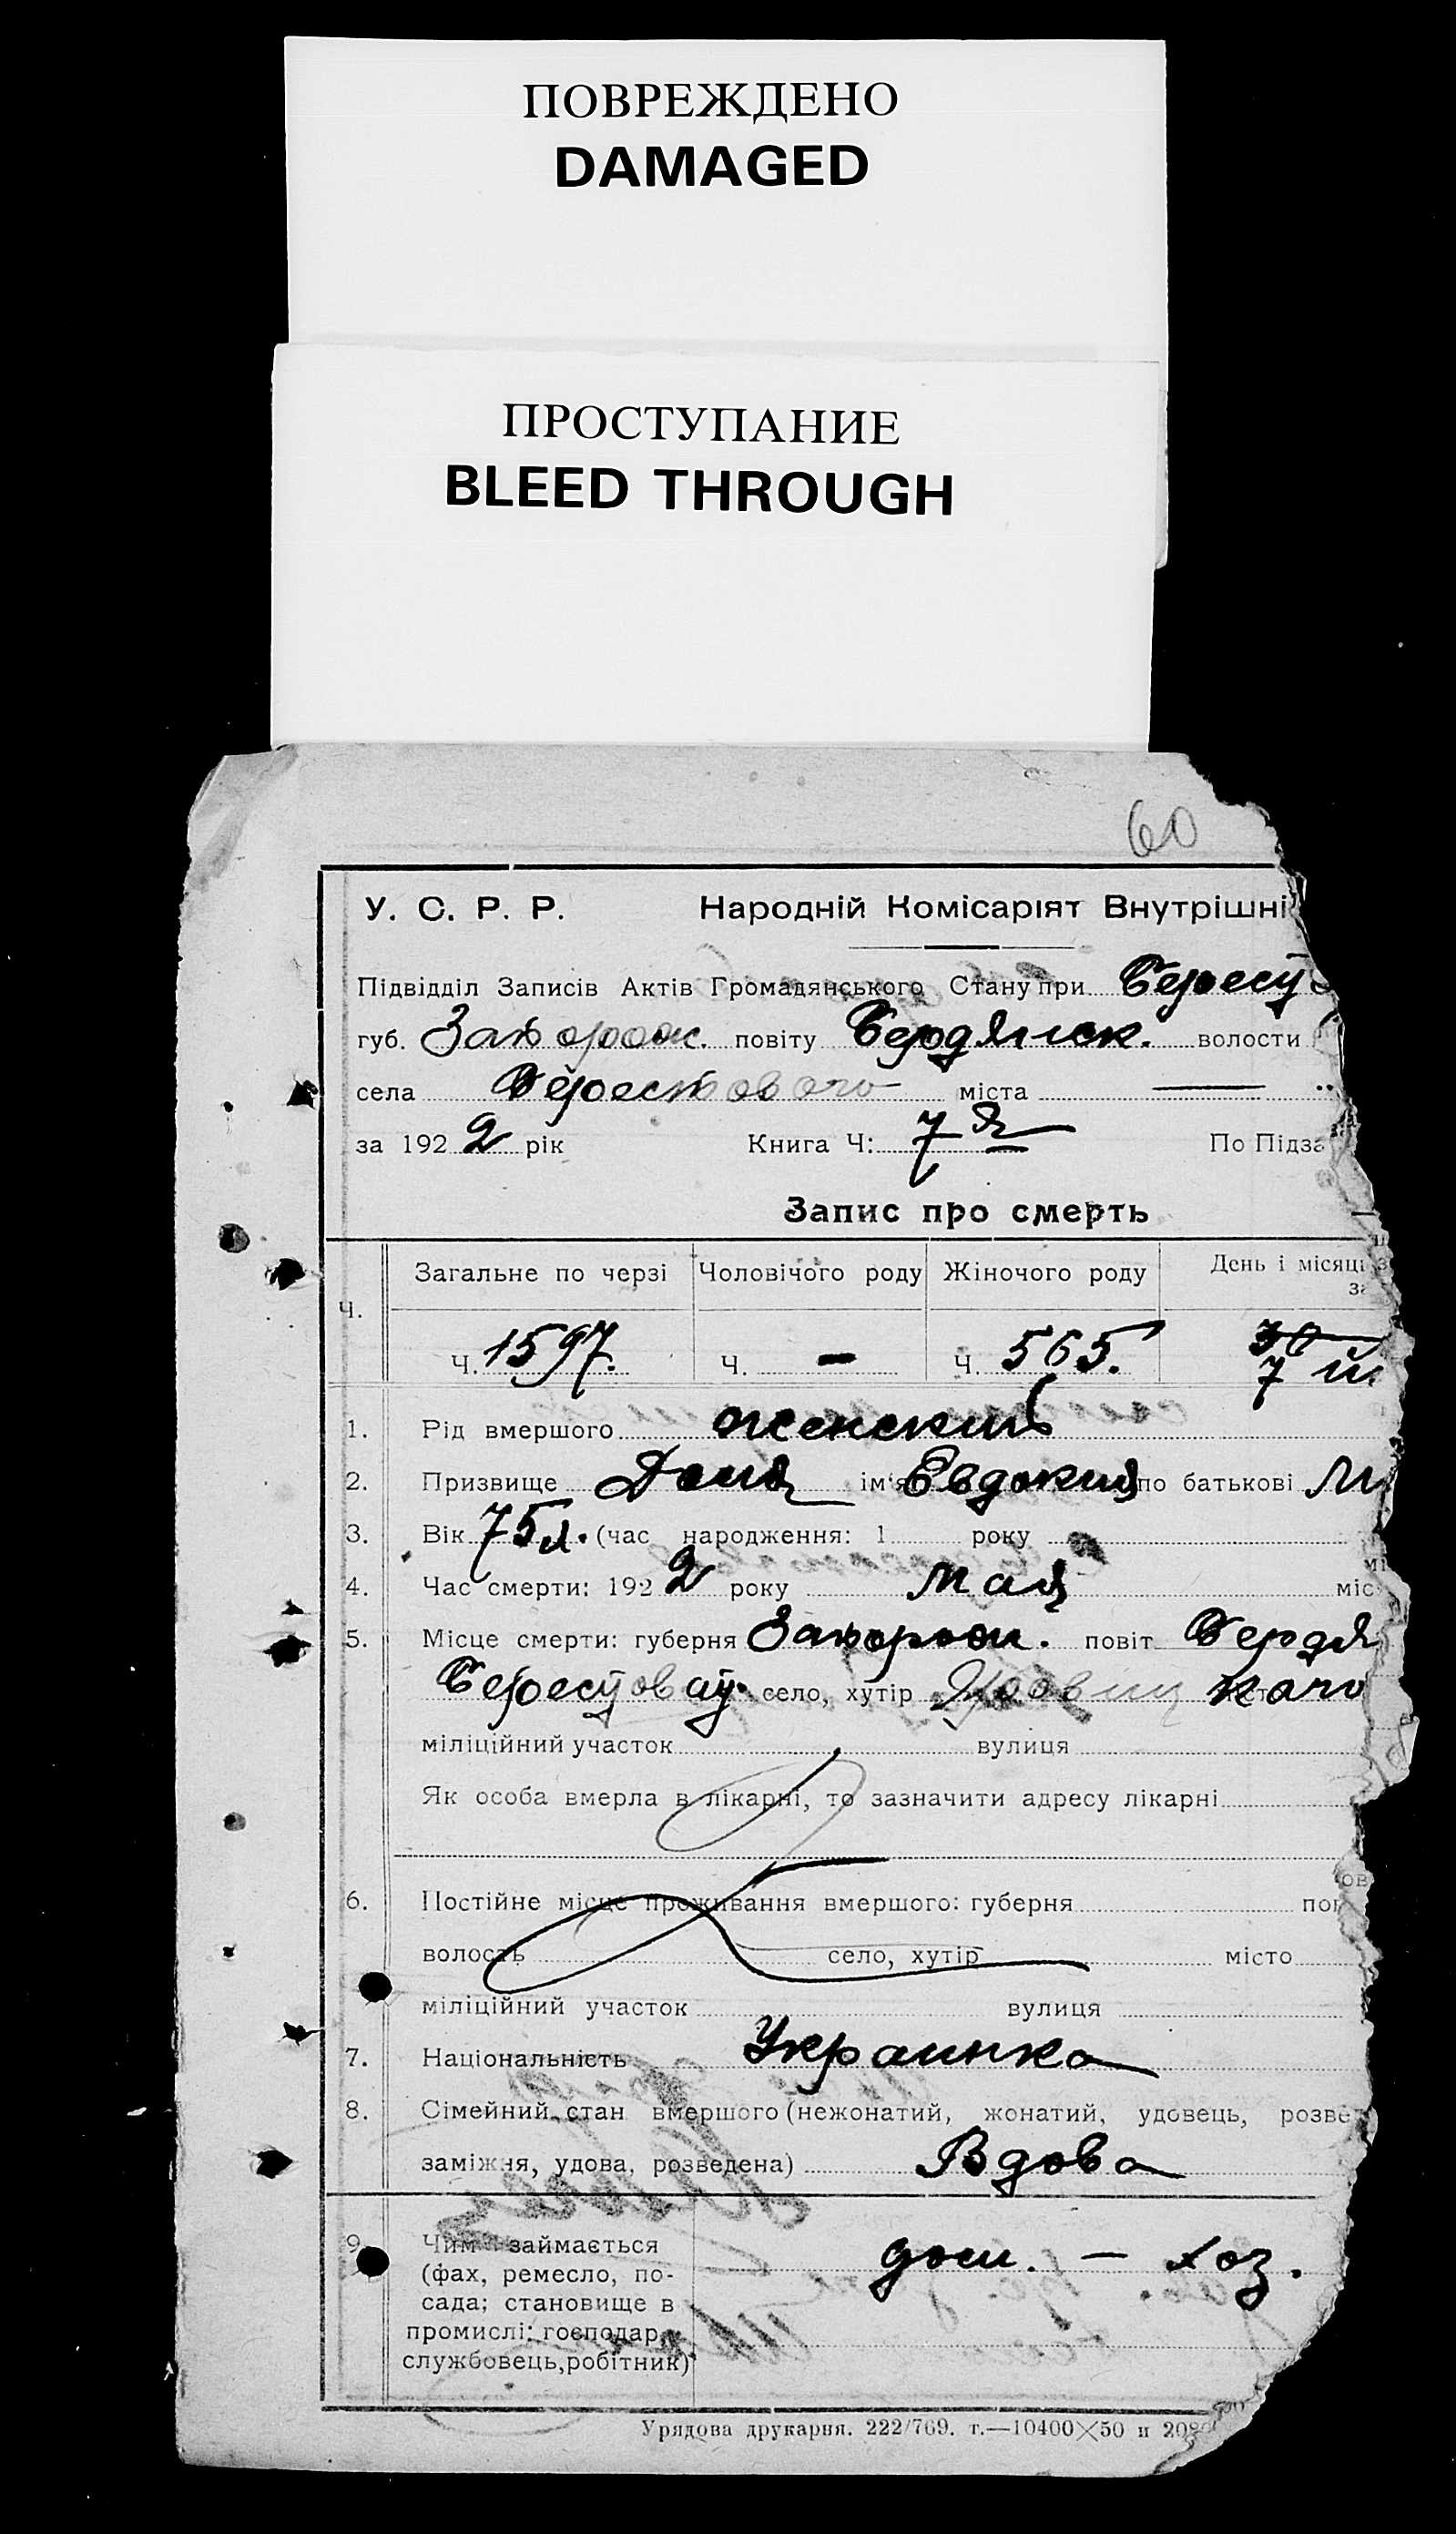 ПОВРЕЖДЕНО
DAMAGED
ПРОСТУПАНИЕ
BLEED THROUGH
60
У. С. Р. Р. Народній Комісаріят Внутрішні
Підвідділ Записів Актів Громадянського Стану при Берест
губ. Запорож. повіту Бердянск. волости
села Берестового міста —
за 1922 рік Книга Ч: 7я По Підза
Запис про смерть
Ч. Загальне по черзі Чоловічого роду Жіночого роду День і місяць
Ч. 1597. Ч. — Ч. 565. 30
7 й
1. Рід вмершого женский
2. Призвище ім'я Евдокия по батькові М
3. Вік 75 л. (час народження: 1 року
4. Час смерти: 1922 року мая міс
5. Місце смерти: губерня Запорож. повіт Бердя
Берестоват. село, хутір
міліційний участок вулиця
Як особа вмерла в лікарні, то зазначити адресу лікарні
6. Постійне місце проживання вмершого: губерня пов
волость село, хутір місто
міліційний участок вулиця
7. Національність Украинка
8. Сімейний стан вмершого (нежонатий, жонатий, удовець, розве
заміжня, удова, розведена) Вдова
9. Чим займається дом. — хоз.
(фах, ремесло, по-
сада; становище в
промислі: господар,
службовець, робітник)
Урядова друкарня. 222/769. т.—10400×50 и 20